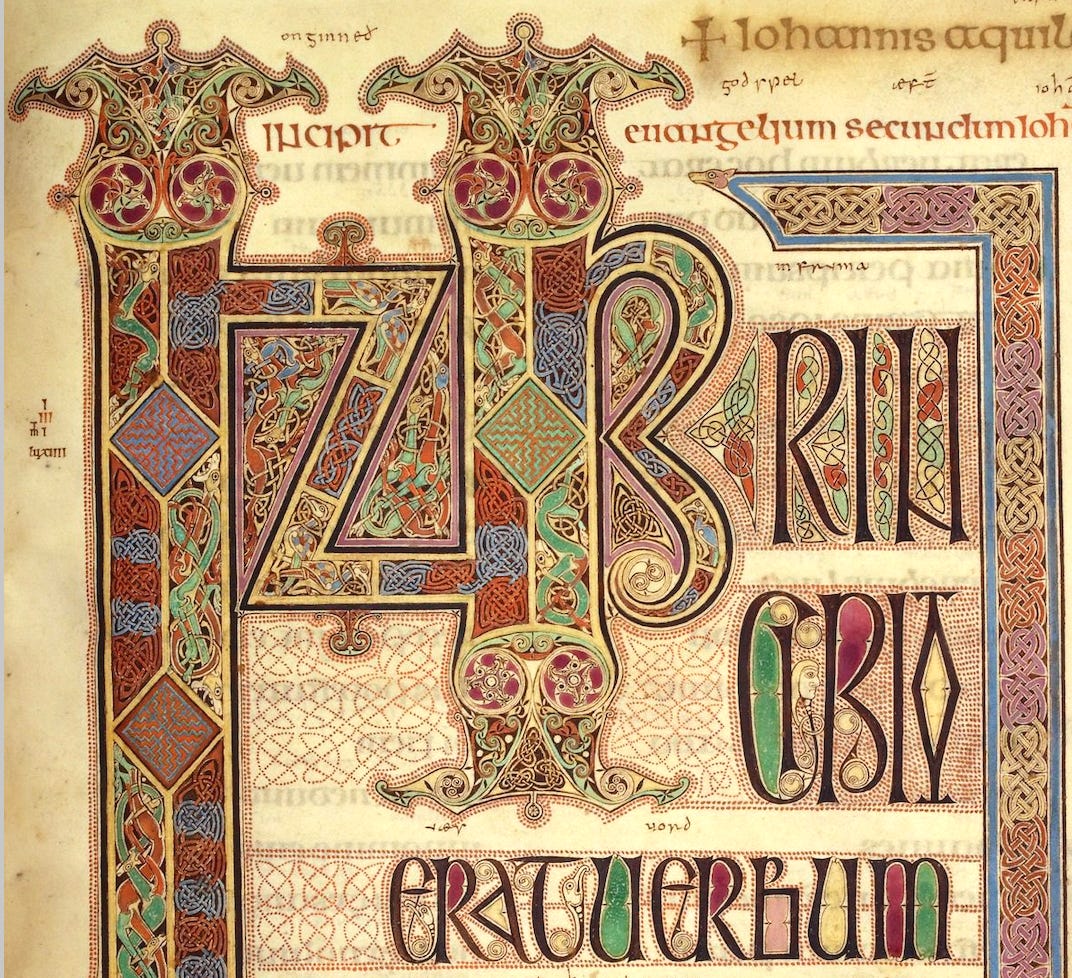 onginneð
+ Iohannis aquil
godspel æft̄ ioh
Incipit euangelium secundum ioh
in fruma
INPRIN
CIPIO
wæs word
ERAT UERBUM